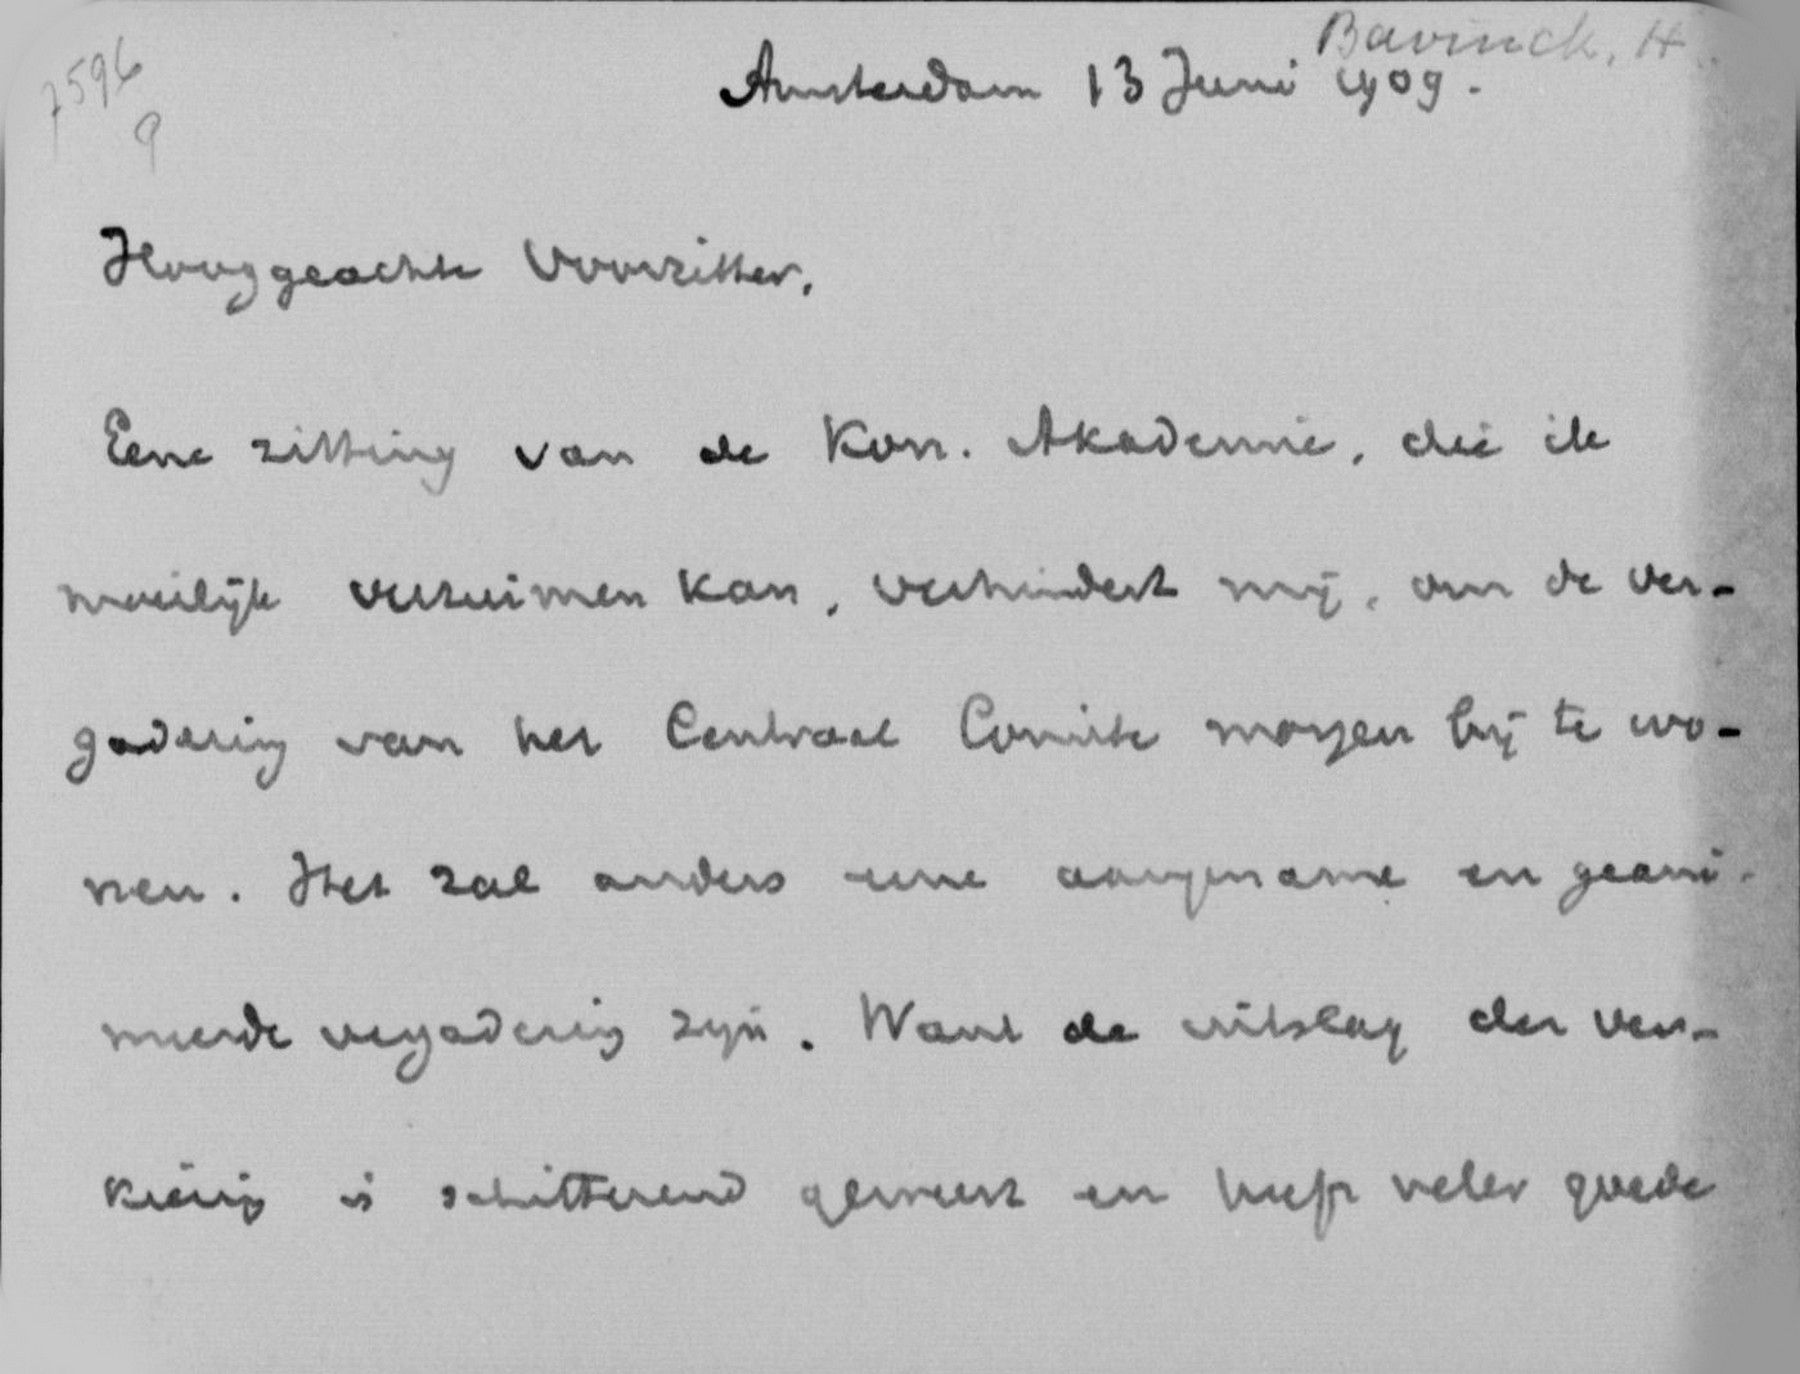 Bavinck, H.
7596
9
Amsterdam 13 Juni 1909.
Hooggeachte Voorzitter,
Eene zitting van de Kon. Akademie, die ik
moeilijk verzuimen kan, verhindert mij, om de ver-
gadering van het Centraal Comité morgen bij te wo-
nen. Het zal anders eene aangename en geani-
meerde vergadering zijn. Want de uitslag der ver-
kiezing is schitterend geweest en heeft veler goede